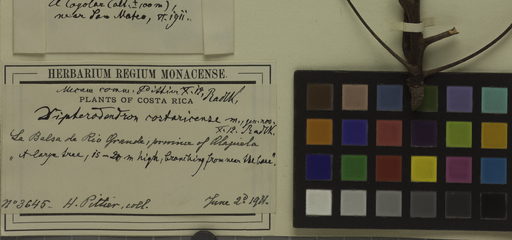 a Cogolar (alt. ± 100 m),
near San Mateo, VI. 1911.
HERBARIUM REGIUM MONACENSE.
Mecum comm. Pittier X. 12. Radlk.
PLANTS OF COSTA RICA
Dipterodendron costaricense m., gen. nov.,
X. 12. Radlk.
La Balsa de Rio Grande, province of Alajuela
"A large tree, 15–20 m high, branching from near the base".
No 3645. H. Pittier, coll. June 2d 1911.